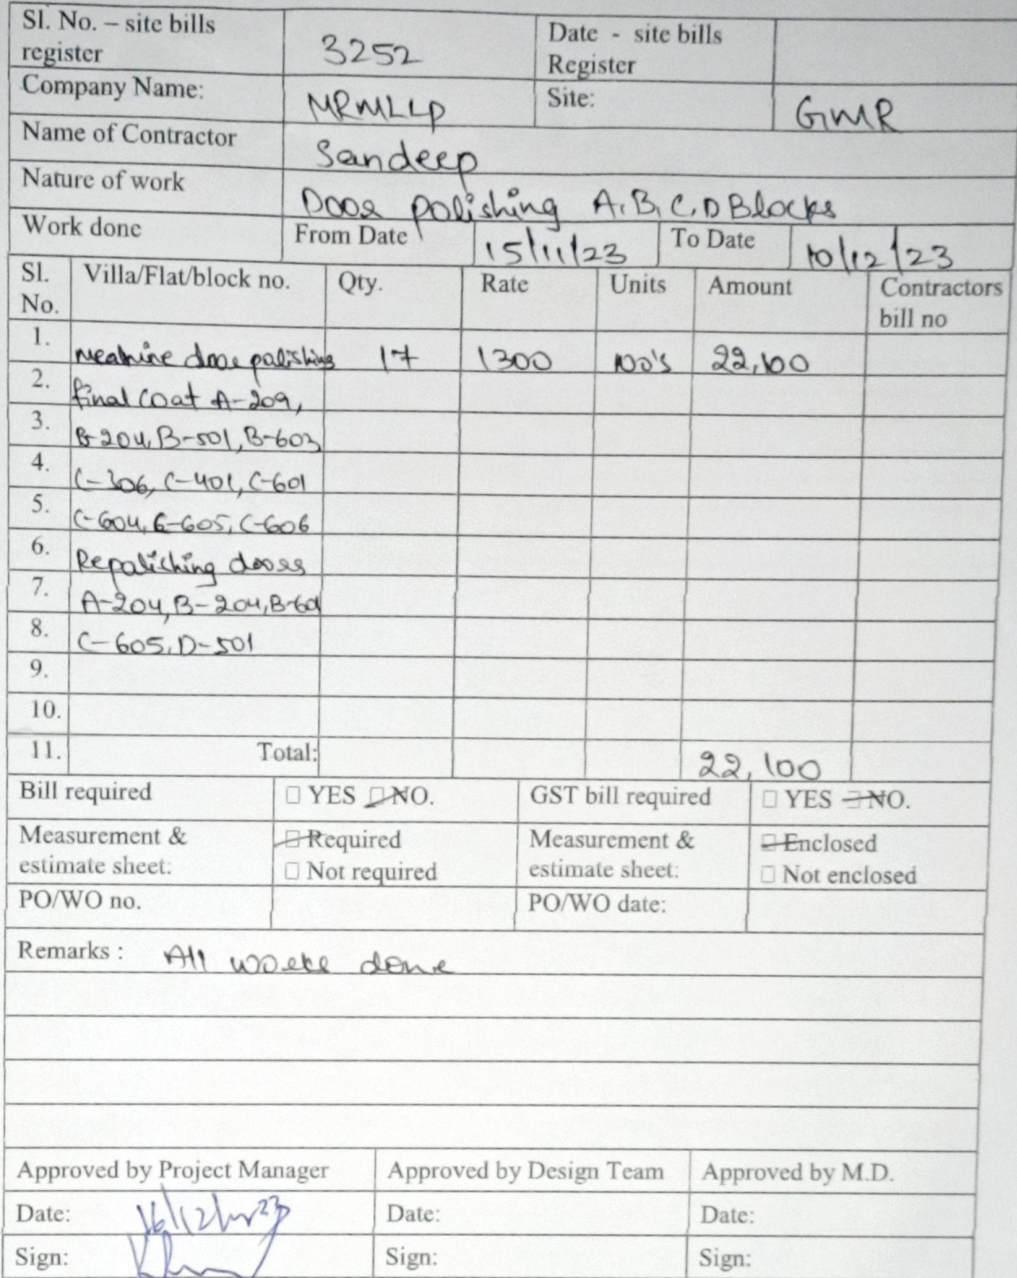 Sl. No. – site bills register 3252 Date - site bills Register
Company Name: MRMLLP Site: GMR
Name of Contractor Sandeep
Nature of work Door polishing A,B,C,D Blocks
Work done From Date 15/11/23 To Date 10/12/23
Sl. No. Villa/Flat/block no. Qty. Rate Units Amount Contractors bill no
1. door polishing 17 1300 no's 22,100
2. final coat A-209,
3. B-204, B-501, B-603
4. C-306, C-401, C-601
5. C-604, C-605, C-606
6. Repolishing doors
7. A-204, B-204, B-601
8. C-605, D-501
9.
10.
11. Total: 22,100
Bill required □ YES □ NO. GST bill required □ YES □ NO.
Measurement & estimate sheet: □ Required □ Not required Measurement & estimate sheet: □ Enclosed □ Not enclosed
PO/WO no. PO/WO date:
Remarks : All works done
Approved by Project Manager Approved by Design Team Approved by M.D.
Date: 16/12/23 Date: Date:
Sign: Sign: Sign: